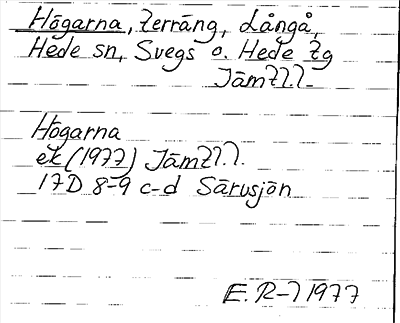 Högarna, terräng, Långå,
Hede sn, Svegs o. Hede tg
Jämtl.l.
Högarna
ek (1977) Jämtl.l.
17D 8-9 c-d Särvsjön
E. R-7 1977